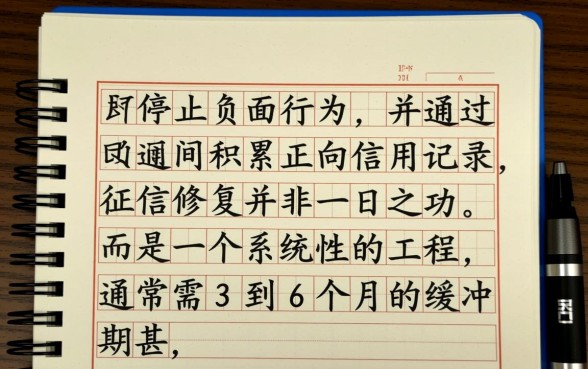 停止负面行为，并通过
间积累正向信用记录，
征信修复并非一日之功。
而是一个系统性的工程，
通常需3到6个月的缓冲
期甚，